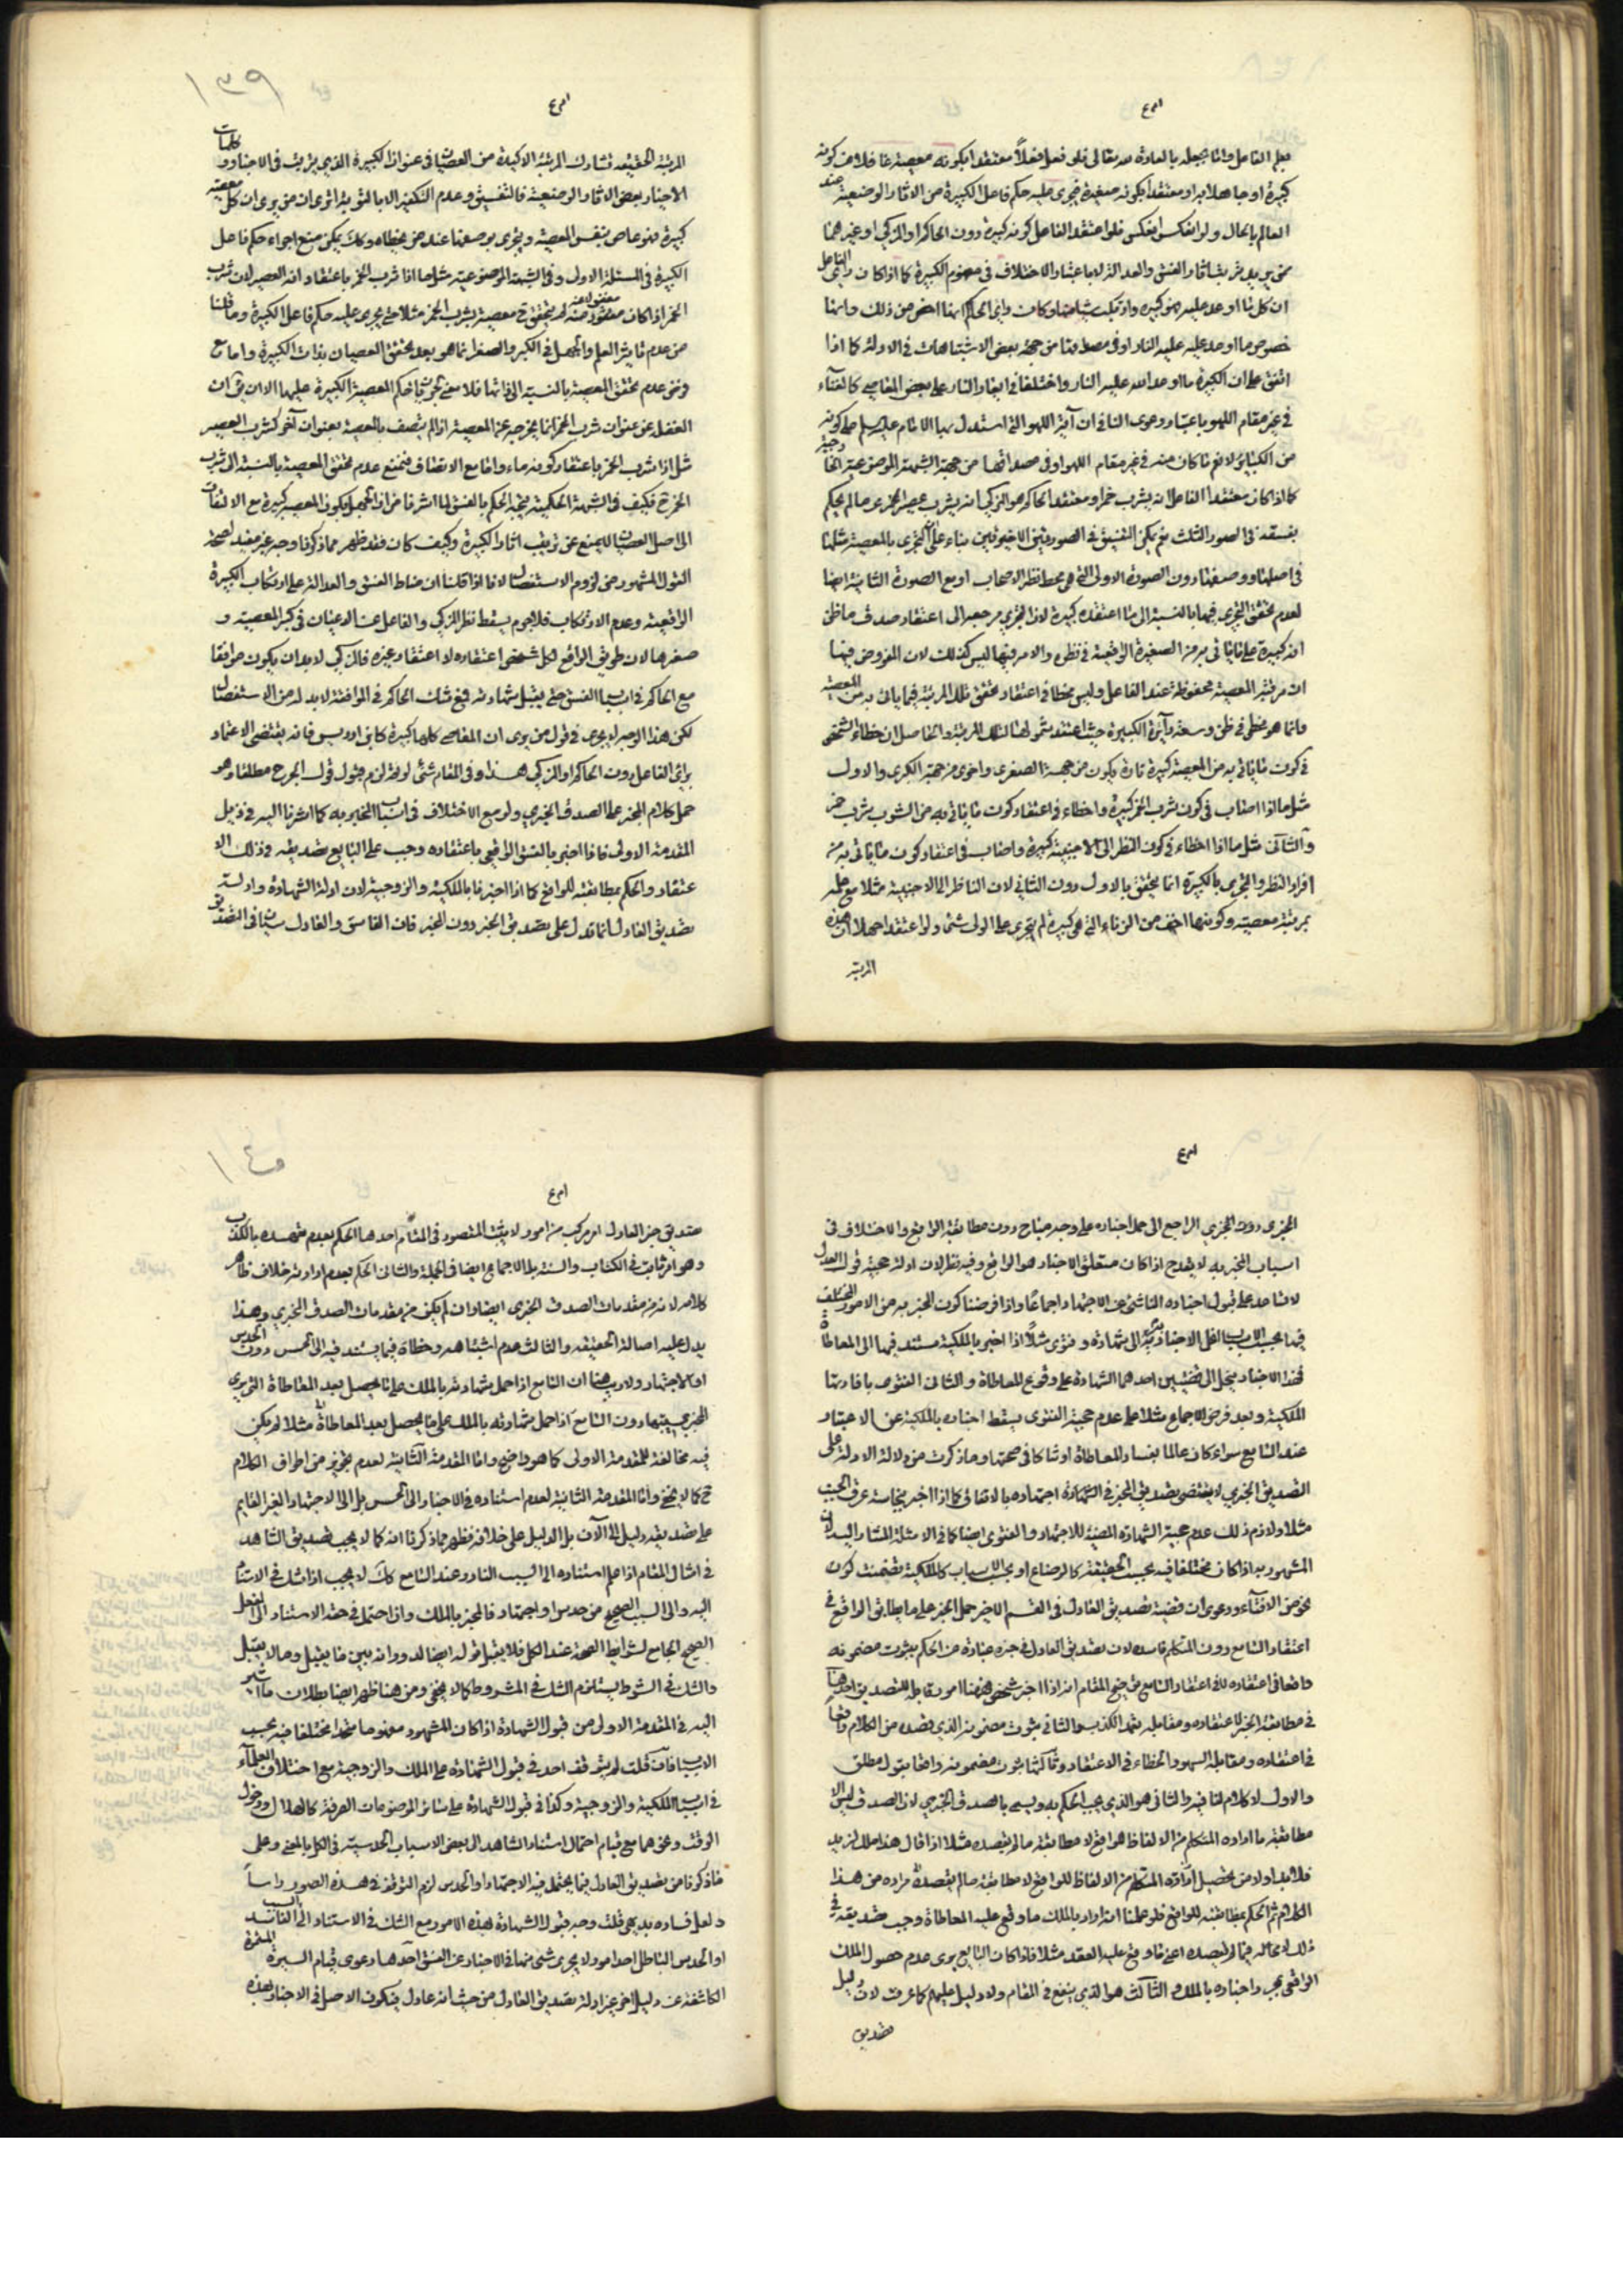 امرع
يعلم الفاعل وانما يجعله بالعادة لله تعالى فلو فعل فعلاً معتقدا بكونه معصية غافلا عن كونه
كبيرة او جاهلا به او معتقدا بكونه صغيرة فيجرى عليه حكم فاعل الكبيرة من الاثار الوضعية عند
العالم بالحال ولو انعكس انعكس فلو اعتقد الفاعل كونه كبيرة دون الحاكم او المزكى او غيرهما
ممن يريد ترتيب اثار الفسق والعدالة لا باعتبار الاختلاف فى مفهوم الكبيرة كما اذا كان راى الفاعل
ان كل ما اوعد عليه فهو كبيرة وارتكب شيئا منها وكان راى الحاكم انها اخص من ذلك وانها
خصوص ما اوعد عليه النار او فى مصداقها من جهة بعض الاشتباهات فى الادلة كما اذا
اتفق على ان الكبيرة ما اوعد الله عليه النار واختلفا فى ايعاد النار على بعض المعاصى كالغناء
فى غير مقام اللهو باعتبار دعوى النافى ان آية اللهو التى استدل بها الامام عليه السلم على كونه
من الكبائر لا تعم ما كان منه فى غير مقام اللهو او فى مصداقها من جهة الشبهة الموضوعية الخارجية
كما اذا كان معتقدا الفاعل انه يشرب خمرا ومعتقد الحاكم او المزكى انه يشرب عصيرا لم يحكم
بفسقه فى الصور الثلث نعم يمكن التفسيق فى الصورتين الاخيرتين بناء على ان التجرى بالمعصية مثلها
فى اصلها ووصفها دون الصورة الاولى التى هى محط نظر الاصحاب او مع الصورة الثانية ايضا
لعدم تحقق التجرى فيهما بالنسبة الى ما اعتقده كبيرة لان التجرى مرجعه الى اعتقاد صدق ما ظن
انه كبيرة على ما ياتى به من الصغيرة الواقعية فى نظره والامر فيهما ليس كذلك لان المفروض فيها
ان مرتبة المعصية محفوظة عند الفاعل وليس مخطئا فى اعتقاد تحقق تلك المرتبة فيما ياتى به من المعصية
وانما هو مخطئ فى ظن وسعة دائرة الكبيرة حيث اعتقد شمولها لتلك المرتبة والحاصل ان خطاء الشخص
فى كون ما ياتى به من المعصية كبيرة تارة يكون من جهة الصغرى واخرى من جهة الكبرى والاول
مثل ما اذا اصاب فى كون شرب الخمر كبيرة واخطاء فى اعتقاد كون ما ياتى به من المشروب شرب خمر
والثانى مثل ما اذا اخطاء فى كون النظر الى الاجنبية كبيرة واصاب فى اعتقاد كون ما ياتى به من
افراد النظر والتجرى بالكبيرة انما يتحقق بالاول دون الثانى لان الناظر الى الاجنبية مثلا مع علمه
بمرتبة معصيته وكونها اخف من الزناء التى هى كبيرة لم يتجرى على المولى شئ ولو اعتقد اجهلا ان هذه
المرتبة
١٣٩
امرع
المرتبة الخفيفة تشارك المرتبة الاكيدة من العصيان فى عنوان الكبيرة الذى يترتب فى الاخبار وكلمات
الاخيار بعض الاثار الوضعية كالتفسيق وعدم التكفير الا بالتوبة الا ترى ان من يرى ان كل معصية
كبيرة فهو عاص بنفس المعصية ويجرى بوصفها عند من يخطاه وكذلك يمكن منع اجراء حكم فاعل
الكبيرة فى المسئلة الاولى وفى الشبهة الموضوعية مثل ما اذا شرب الخمر باعتقاد انه العصير لان شرب
الخمر اذا كان مغفولا عنه لم يتحقق ح معصية بشرب الخمر مثلا حتى يجرى عليه حكم فاعل الكبيرة وما قلنا
من عدم تاثير العلم والجهل فى الكبر والصغر انما هو بعد تحقق العصيان بذات الكبيرة واما مع
فرض عدم تحقق المعصية بالنسبة الى ذاتها فلا معنى لترتب احكام المعصية الكبيرة عليها الا ان يق ان
الغفلة عن عنوان شرب الخمر انما يخرجه عن المعصية اذا لم يتصف بالمعصية بعنوان آخر كشرب العصير
مثل اذا شرب الخمر باعتقاد كونه ماء واما مع الاتصاف فنمنع عدم تحقق المعصية بالنسبة الى شرب
الخمر ح فكيف فى الشبهة الحكمية يتجه الحكم بالفسق لما اشرنا من ان الجهل بكون المعصية كبيرة مع الالتفات
الى اصل العصيان لا يمنع عن ترتيب اثار الكبيرة وكيف كان فقد ظهر مما ذكرنا وجه غير مفيد لصحة
القول المشهور من لزوم الاستفصال لانا اذا قلنا ان مناط الفسق والعدالة على ارتكاب الكبيرة
الواقعية وعدم الارتكاب فلا جرم يسقط نظر المزكى والفاعل عند الاعيان فى كبر المعصية و
صغرها لان طريق الواقع لكل شخص اعتقاده لا اعتقاد غيره فالمزكى لا بد ان يكون موافقا
مع الحاكم فى اسباب الفسق حتى يقبل شهادته فمع شك الحاكم فى الموافقة لا بد له من الاستفصال
لكن هذا الوجه لا يجرى فى قول من يرى ان المعاصى كلها كبيرة كابن ادريس فانه يقتضى الاعتماد
براى الفاعل دون الحاكم او المزكى هذا وفى المقام شئ لو تم لزم قبول قول الجرح مطلقا وهو
حمل كلام المخبر على الصدق الخبرى ولو مع الاختلاف فى اسباب المخبر به كما اشرنا اليه فى ذيل
المقدمة الاولى فاذا اخبر بالفسق الواقعى باعتقاده وجب على السامع تصديقه فى ذلك الا
عتقاد والحكم بمطابقته للواقع كما اذا اخبرنا بالملكية والزوجية لان ادلة الشهادة وادلة
تصديق العادل انما تدل على تصديق الخبر دون المخبر فان الفاسق والعادل سيان فى التصديق
امرع
الخبرى دون المخبرى الراجع الى حمل اخباره على وجه مباح دون مطابقة الواقع والاختلاف فى
اسباب المخبر به لا يقدح اذا كان متعلق الاخبار هو الواقع وفيه نظر لان ادلة حجية قول العدل
لا تساعد على قبول اخباره الناشئ عن الاجتهاد اجماعا واذا فرضنا كون المخبر به من الامور المختلف
فيها بحسب الاسباب انحل الاخبار به الى شهادة وفتوى مثلاً اذا اخبر بالملكية مستند فيها الى المعاطاة
فهذا الاخبار ينحل الى قضيتين احدهما الشهادة على وقوع المعاطاة والثانى الفتوى بافادتها
الملكية وبعد فرض الاجماع مثلا على عدم حجية الفتوى يسقط اخباره بالملكية عن الاعتبار
عند السامع سواء كان عالما بفساد المعاطاة او شاكا فى صحتها وما ذكرت من دلالة الادلة على
التصديق الخبرى لا يقتضى تصديق المخبر فى الشهادة اجتهاده بالاتفاق كما اذا اخبر بنجاسة عرق الجنب
مثلا ولازم ذلك عدم حجية الشهادة المبنية للاجتهاد والفتوى ايضا كما فى الامثلة المشار اليها لان
المشهود به اذا كان مختلفا فيه بحسب الحقيقة كالرضاع او بحسب الاسباب كالملكية تضمنت كون
نحو من الافتاء ودعوى ان قضية تصديق العادل فى القسم الاخير حمل المخبر على ما يطابق الواقع فى
اعتقاد السامع دون المتكلم فاسدة لان تصديق العادل فى خبره عبارة عن الحكم بثبوت مضمونه
واقعا فى اعتقاده لا فى اعتقاد السامع توضيح المقام انه اذا اخبر شخص فهنا امور قابلة للتصديق احدها
فى مطابقة الخبر لاعتقاده ومقابله تعمد الكذب والثانى ثبوت مضمونه الذى قصده من الكلام واقعا
فى اعتقاده ومقابله السهو والخطاء فى الاعتقاد وثالثها ثبوت مضمونه واقعا بقول مطلق
والاول لا كلام لنا فيه والثانى هو الذى يجب الحكم به ويسمى بالصدق الخبرى لان الصدق ليس الا
مطابقة ما اراده المتكلم من الالفاظ للواقع لا مطابقة ما لم يقصده مثلا اذا قال هذا ملك لزيد
فلا بد اولا من تحصيل ما اراده المتكلم من الالفاظ للواقع لا مطابقة ما لم يقصده مراده من هذا
الكلام ثم الحكم بمطابقته للواقع فلو علمنا انه اراد بالملك ما وقع عليه المعاطاة وجب تصديقه فى
ذلك لا محالة فيما لم يقصده اعنى ما وقع عليه العقد مثلا فاذا كان السامع يرى عدم حصول الملك
الواقعى بمجرد اخباره بالملك والثالث هو الذى ينفع فى المقام ولا دليل عليه كما عرفت لان دليل
تصديق
١٤٠
امرع
تصديق خبر العادل امر مركب من امور لا يثبت المقصود فى المقام احدها الحكم بعدم تعمده بالكذب
وهو امر ثابت فى الكتاب والسنة بل الاجماع ايضا فى الجملة والثانى الحكم بعدم ارادته خلاف ظاهر
كلامه لانه من مقدمات الصدق الخبرى ايضا وان لم يكن من مقدمات الصدق المخبرى وهذا
يدل عليه اصالة الحقيقة والثالث عدم اشتباهه وخطاه فيما يستند فيه الى الحس دون الحدس
او الاجتهاد ولا ريب هنا ان السامع اذا حمل شهادته بالملك على ما يحصل بعد المعاطاة التى يرى
المخبر سببيتها دون السامع اذا حمل شهادته بالملك على ما يحصل بعد المعاطاة مثلا لم يكن
فيه مخالفة للمقدمة الاولى كما هو واضح واما المقدمة الثانية لعدم تجويز من اطراف الكلام
ح كما لا يخفى واما المقدمة الثانية لعدم استناده فى الاخبار الى الحس بل الى الاجتهاد الغير القايم
على تصديقه دليل الى الآن بل الدليل على خلافه فظهر مما ذكرنا انه كما لا يجب تصديق الشاهد
فى امثال المقام اذا علم استناده الى السبب الفاسد عند السامع كذلك لا يجب اذا شك فى الاستناد
اليه والى السبب الصحيح من حدس او اجتهاد فالمخبر بالملك واذا احتمل فى حقه الاستناد الى الفعل
الصحيح الجامع لشرايط الصحة عند الكل فلا يقبل قوله ايضا لدورانه بين ما يقبل وما لا يقبل
والشك فى الشرط يستلزم الشك فى المشروط كما لا يخفى ومن هنا ظهر ايضا بطلان ما اشير
اليه فى المقدمة الاولى من قبول الشهادة اذا كان المشهود مفهوما متحدا مختلفا فيه بحسب
الاسباب فان قلت لم يتوقف احد فى قبول الشهادة على الملك والزوجية مع اختلاف العلماء
فى اسباب الملكية والزوجية وكذا فى قبول الشهادة على سائر الموضوعات العرفية كالهلال ودخول
الوقت ونحوهما مع قيام احتمال استناد الشاهد الى بعض الاسباب الحدسية فى الكل بالمعنى وعلى
ما ذكرنا من تصديق العادل فيما يحتمل فيه الاجتهاد او الحدس لزم التوقف فى هذه الصور راساً
ولعل فساده بديهى قلت وجه قبول الشهادة لهذه الامور مع الشك فى الاستناد الى السبب الفاسد
او الحدس الباطل احد امور لا يجرى شئ منها فى الاخبار عن الفسق احدها دعوى قيام السيرة المستمرة
الكاشفة عن دليل اخر غير ادلة تصديق العادل من حيث انه عادل فيكون الاصل فى الاخبار بهذه